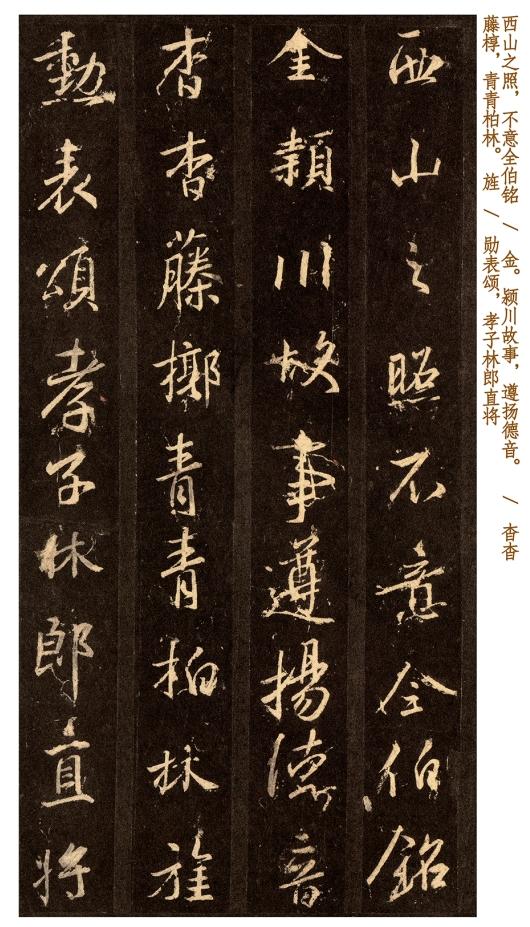 西山之照，不意全伯铭 / 金。颍川故事，遵扬德音。 / 杳杳
藤椁，青青柏林。旌 / 勋表颂，孝子林郎直将
西山之照不意令伯銘
金穎川故事遵揚德音
杳杳藤槨青青柏林旌
勳表頌孝子林郎直將